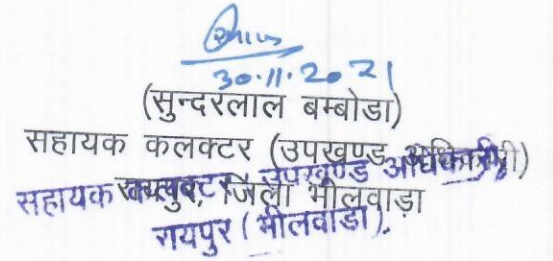 30.11.2021
(सुन्दरलाल बम्बोडा)
सहायक कलक्टर (उपखण्ड अधिकारी)
रायपुर, जिला भीलवाड़ा
सहायक कलक्टर, उपखण्ड अधिकारी,
रायपुर (भीलवाडा).